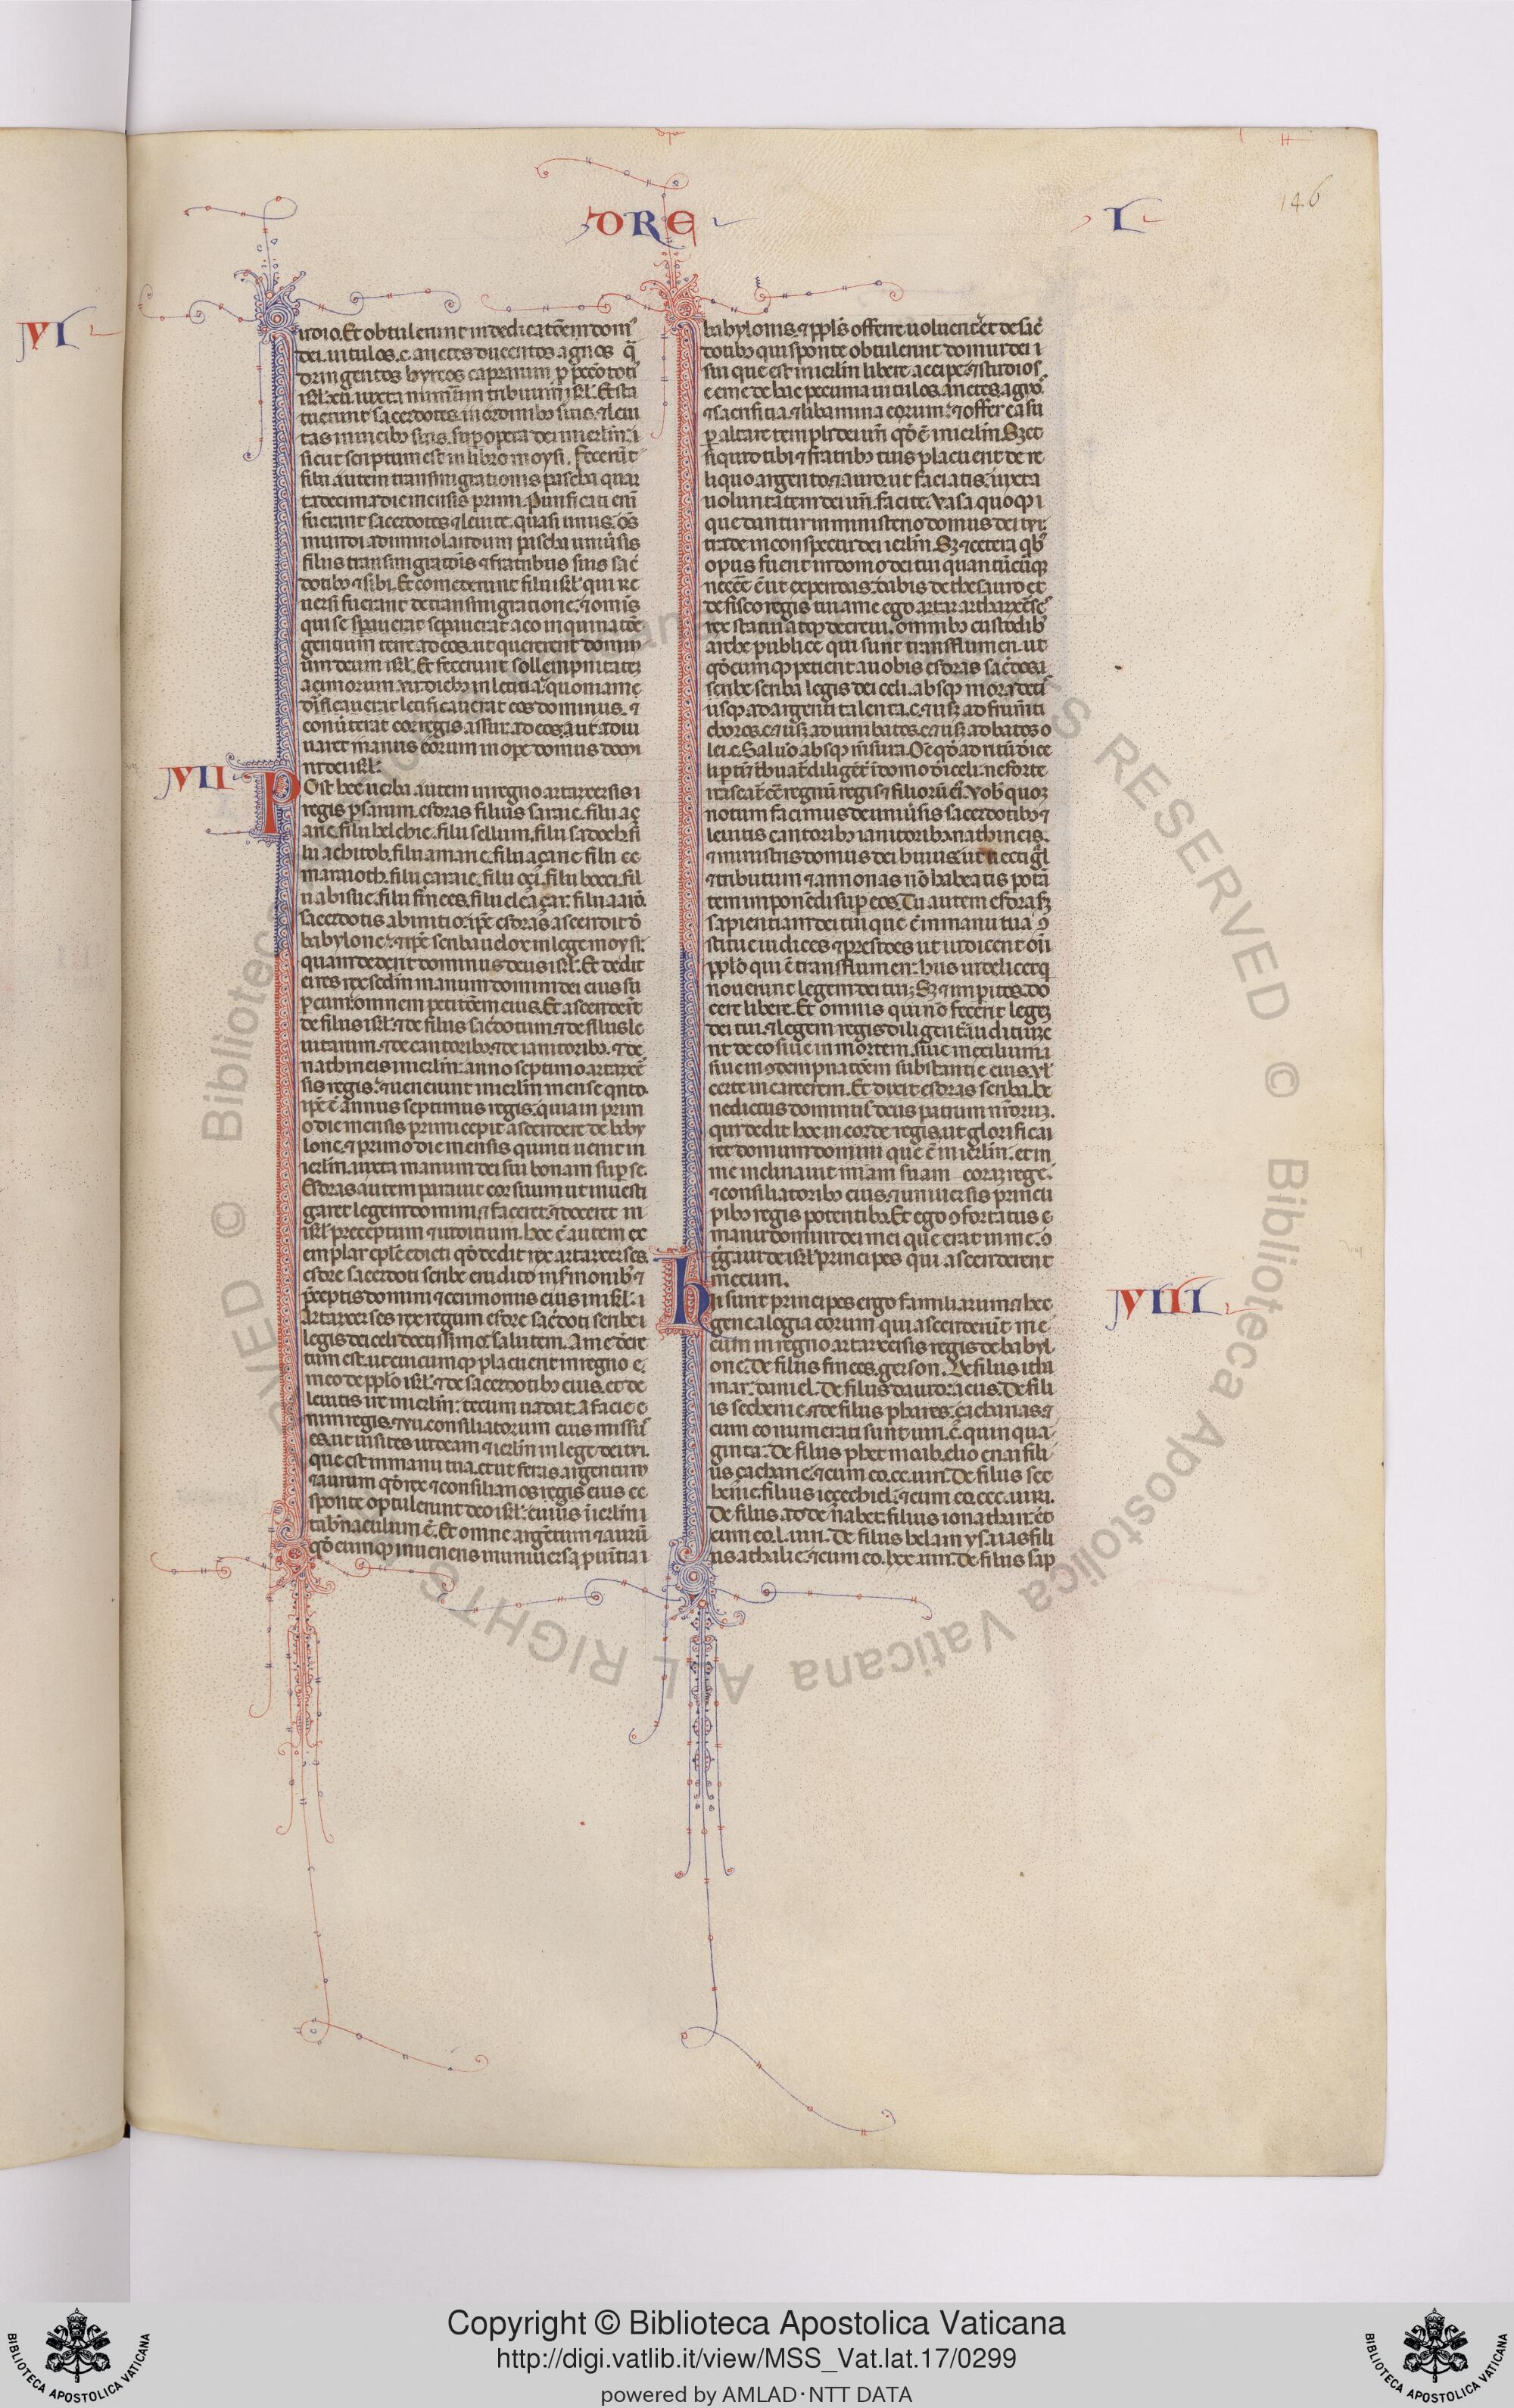 DRE
I
146
VI
udio. Et obtulerunt in dedicatōem dom᷒
dei. uitulos .c. arietes ducentos agnos q̄
dringentos hyrcos caprarum p̱ pecc̄o toti᷒
isrl̄. xii. iuxta num̄um tribuum isrl̄. Et sta
tuerunt sacerdotes in ordinib᷒ suis. ⁊ leui
tas in uicib᷒ suis. sup̱ opera dei in ierl̄m. i
sicut scriptum est in libro moysi. Fecer̄ut
filii autem transmigrationis pascha quar
tadecima die mensis primi. Purificati eni᷒
fuerant sacerdotes ⁊ leuite. quasi unus. om̄s
mundi ad immolandum pascha uniu᷒sis
filiis transmigratōis ⁊ fratribus suis sac᷒
dotib᷒ ⁊ sibi. Et comederunt filii isrl̄ qui re
uersi fuerant de transmigratione. ⁊ omis᷒
qui se sep̱auerat sep̱auerat a coinquinatōe
gentium terre ad eos. ut quererent domin
um deum isrl̄. Et fecerunt sollempnitatem
açimorum .vii. diebus in letitia. quoniam e
dificauerat letificauerat eos dominus. ⁊
conu᷒terat cor regis assur ad eos. aut adiu
uaret manus eorum in ope domus domi
ni dei isrl̄.
VII
Post hec uerba autem in regno artaxersis i
regis p̱sarum. esdras filius saraie. filii aç
arie. filii helchie. filii sellum. filii sadoch. fi
lii achitob. filii amarie. filii açarie filii ee
maraioth. filii çaraie. filii oçi. filii bocci. fil
ii abisue. filii finees. filii eleaçar. filii aaro᷒.
sacerdotis ab initio. ip̄e esdras ascendit d̄
babylone. ⁊ ip̄e scriba uelox in lege moysi.
quam dederit dominus deus isrl̄. Et dedit
ei res rex sedm̄ manum domini dei eius su
p̱ eum. omnem petitōem eius. Et ascender̄t
de filiis isrl̄. ⁊ de filiis sac᷒dotum. ⁊ de filiis le
uitarum. ⁊ de cantorib᷒. ⁊ de ianitorib᷒. ⁊ de
nathineis in ierl̄m. anno septimo artaxer᷒
sis regis. ⁊ uenerunt in ierl̄m mense qnto.
ip̄e ē annus septimus regis. quia in prim
o die mensis primi cepit ascendere de baby
lone. ⁊ primo die mensis quinti uenit in
ierl̄m. iuxta manum dei sui bonam sup̱ se.
Esdras autem parauit cor suum ut inuesti
garet legem domini. ⁊ faceret. ⁊ doceret in
isrl̄ preceptum ⁊ iuditium. hec ē autem ex
emplar epl̄e edicti qd̄ dedit rex artaxerses.
esdre sacerdoti scribe erudito in s᷒monib᷒ ⁊
p̄ceptis domini ⁊ cerimoniis eius in isrl̄. i
Artaxerses rex regum esdre sac᷒doti scribe i
legis dei celi doctissimo salutem. A me decre
tum est. ut cuicumq̱ placuerit in regno e.
meo de pp̄lo isrl̄. ⁊ de sacerdotib᷒ eius. et de
leuitis ire in ierl̄m. tecum uadat. A facie e
nim regis. ⁊ vii. consiliatorum eius missus᷒
es. ut uisites iudeam ⁊ ierl̄m in lege dei tui.
que est in manu tua. et ut feras argentum
⁊ aurum qd̄ rex ⁊ consiliarios regis eius ee
sponte optulerunt deo isrl̄. cuius in ierl̄m i
tab᷒naculum ē. Et omne arge᷒tum ⁊ auru᷒
qd̄ cumq̱ inueneris in uniuersa p̱uin᷒tia i
babylonis. ⁊ pp̄ls᷒ offerre uoluerit. et de sac᷒
dotib᷒ qui sponte obtulerunt domui dei i
sui que est in ierl̄m libere accipe. ⁊ studios᷒
e eme de hac pecunia uitulos. arietes. agno᷒.
⁊ sacrifitia. ⁊ libamina eorum. ⁊ offer ea su
p̱ altare templi dei ur̄i qd̄ ē in ierl̄m. Sȝ et
si quid tibi ⁊ fratrib᷒ tuis placuerit de re
liquo argento. ⁊ auro. ut faciatis. iuxta
uoluntatem dei ur̄i. facite. Vasa quoq̱ i
que dantur in ministerio domus dei tui.
trade in conspectu dei ierl̄m. Sȝ ⁊ cetera qb᷒
opus fuerit in domo dei tui quantu᷒cu᷒q̱
necee᷒ e᷒ ut expendas. dabis de thesauro et
de fisco regis ⁊ a me ego artar artharxe᷒rse᷒
rex statui atq̱ decreui. omnib᷒ custodib᷒
arche publice qui sunt transflumen. ut
qd̄cumq̱ petierit a uobis esdras sac᷒dos i
scribe scriba legis dei celi. absq̱ mora deti᷒
usq̱ ad argenti talenta .c. ⁊ usȝ ad frume᷒ti
choros .c. ⁊ usȝ ad uini batos .c. ⁊ usȝ ad batos o
lei .c. Sal u᷒o absq̱ m᷒sura. Oe᷒ qd̄ ad ritu᷒ d᷒i ce
li p̱tin᷒ t᷒buat᷒ dilige᷒t᷒ i domo d᷒i celi. ne forte
irascat᷒ cō regnu᷒ regis ⁊ filioru᷒ ei᷒. Vob᷒ quoȝ
notum facimus de uniu᷒sis sacerdotib᷒ ⁊
leuitis cantorib᷒ ianitorib᷒ nathineis.
⁊ ministris domus dei huius. ut uectigl̄
⁊ tributum ⁊ annonas no᷒ habeatis pota᷒
tem impone᷒di sup̱ eos. Tu autem esdras sȝ
sapientiam dei tui que ē in manu tua ꝯ
stitue iudices ⁊ p̄esides ut iudicent om᷒i
pp̄lo qui ē transflumen. hiis uidelicet q
nouerunt legem dei tui. Sȝ ⁊ imp̱itos do
cete libere. Et omnis qui no᷒ fecerit legem
dei tui. ⁊ legem regis diligent᷒. iuditium e
rit de eo siue in mortem. siue in exilium i
siue in ꝯdempnatōem substantie eius. ul̄
certe in carcerem. Et dixit esdras scriba. be
nedictus dominus deus patrum nr̄oruꝫ.
qui dedit hoc in corde regis. ut glorificar
ret domum domini que ē in ierl̄m. et in
me inclinauit mi᷒am suam coram rege.
⁊ consiliatorib᷒ eius. ⁊ uniuersis princi
pib᷒ regis potentib᷒. Et ego ꝯfortatus e
manu domini dei mei que erat in me. ꝯ
g᷒gaui de isrl̄ principes qui ascenderent
mecum.
VIII
Hii sunt principes ergo familiarum. ⁊ hec
genealogia eorum qui ascender᷒ut me
cum in regno artarxersis regis de babyl
one. De filiis finees. gerson. De filiis itha
mar. daniel. De filiis dauid. acus. De fili
is secheme. ⁊ de filiis phares. çacharias. ⁊
cum eo numerati sunt uiri .c. quinqua
ginta. De filiis phet moab. elioenai fili
us çacharie. ⁊ cum eo .cc. uiri. De filiis sec
henie. filius ieçechiel. ⁊ cum eo .ccc. uiri.
De filiis adden. nabet. filius ionathan. et
cum eo .l. uiri. De filiis helam ysaias fili
us athalie. ⁊ cum eo .lxx. uiri. De filiis sap
Copyright © Biblioteca Apostolica Vaticana
http://digi.vatlib.it/view/MSS_Vat.lat.17/0299
powered by AMLAD·NTT DATA